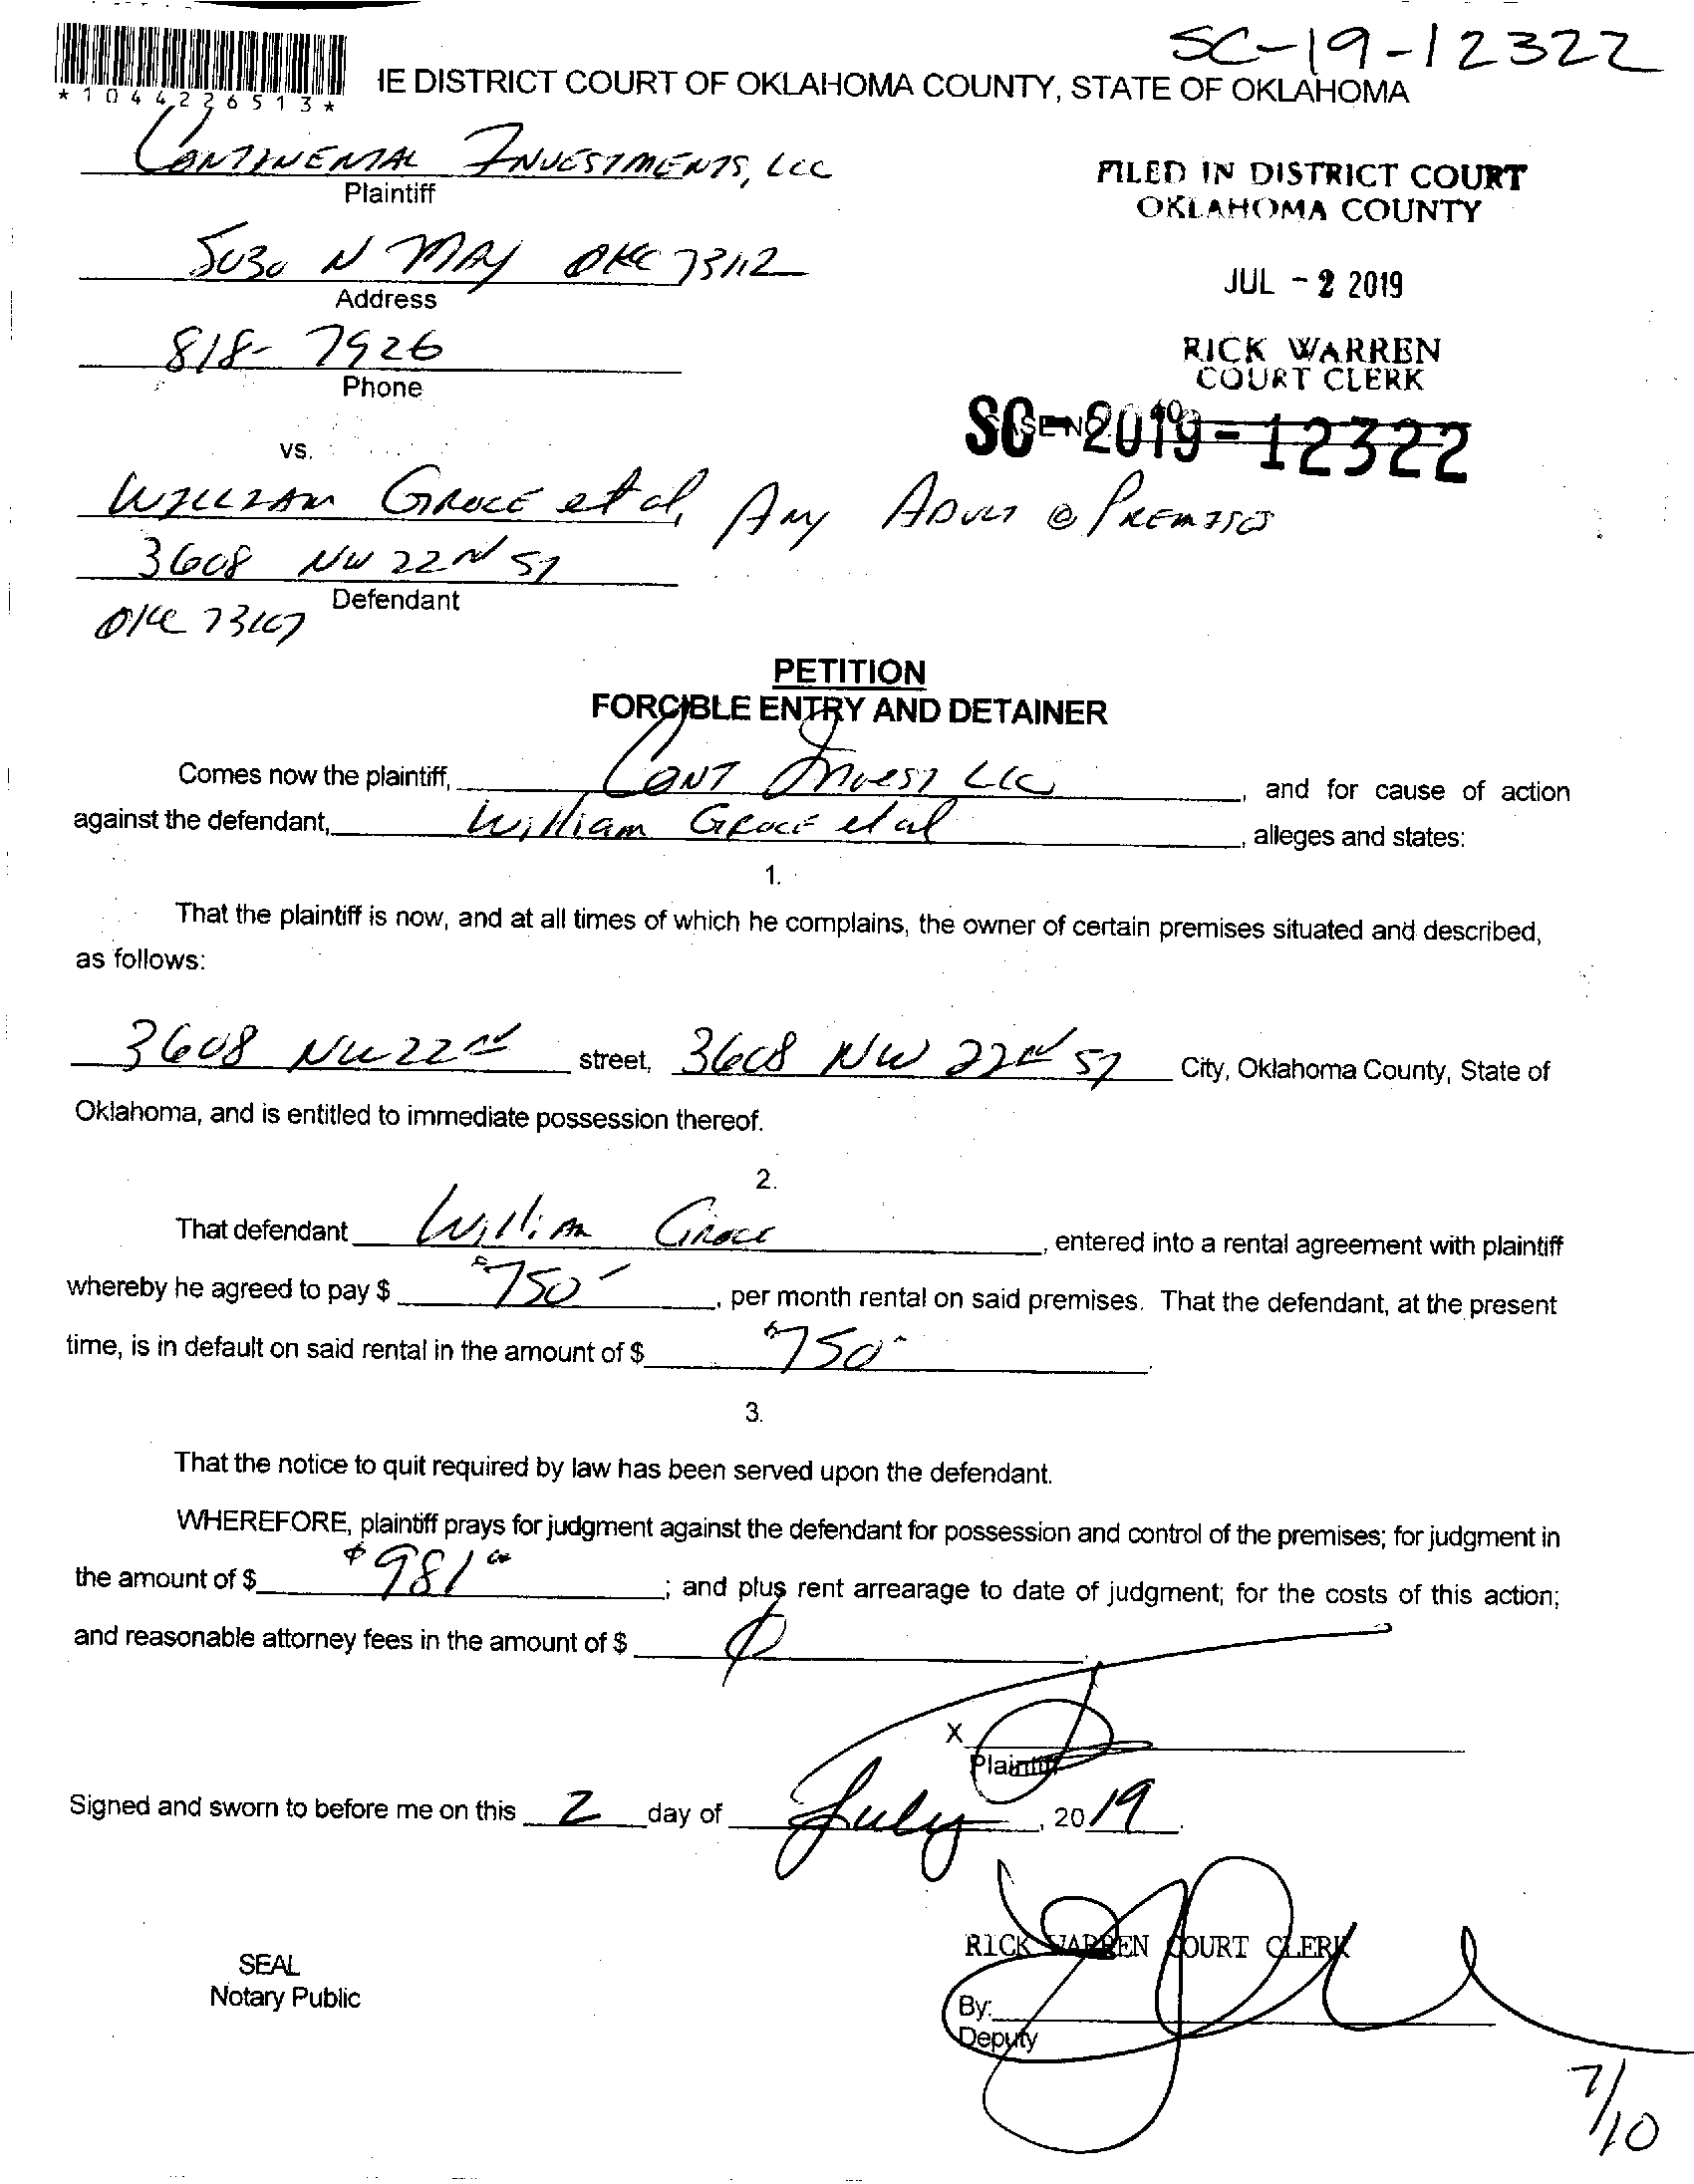 SC-19-12322
*1044226513*
IE DISTRICT COURT OF OKLAHOMA COUNTY, STATE OF OKLAHOMA
CONTINENTAL INVESTMENTS, LLC
Plaintiff
FILED IN DISTRICT COURT
OKLAHOMA COUNTY
5030 N MAY OKC 73112
Address
JUL - 2 2019
818-7926
Phone
RICK WARREN
COURT CLERK
SC-2019-12322
vs.
WILLIAM GROCE et al, ANY ADULT @ PREMISES
3608 NW 22ND ST
Defendant
OKC 73107
PETITION
FORCIBLE ENTRY AND DETAINER
Comes now the plaintiff, CONT INVEST LLC, and for cause of action
against the defendant, William GROCE et al, alleges and states:
1.
That the plaintiff is now, and at all times of which he complains, the owner of certain premises situated and described,
as follows:
3608 NW 22nd street, 3608 NW 22nd ST City, Oklahoma County, State of
Oklahoma, and is entitled to immediate possession thereof.
2.
That defendant William Groce, entered into a rental agreement with plaintiff
whereby he agreed to pay $ $750-, per month rental on said premises. That the defendant, at the present
time, is in default on said rental in the amount of $ $750-.
3.
That the notice to quit required by law has been served upon the defendant.
WHEREFORE, plaintiff prays for judgment against the defendant for possession and control of the premises; for judgment in
the amount of $ $981 00; and plus rent arrearage to date of judgment; for the costs of this action;
and reasonable attorney fees in the amount of $ 0.
X
Plaintiff
Signed and sworn to before me on this 2 day of July, 2019.
RICK WARREN COURT CLERK
SEAL
Notary Public
By:
Deputy
7/10